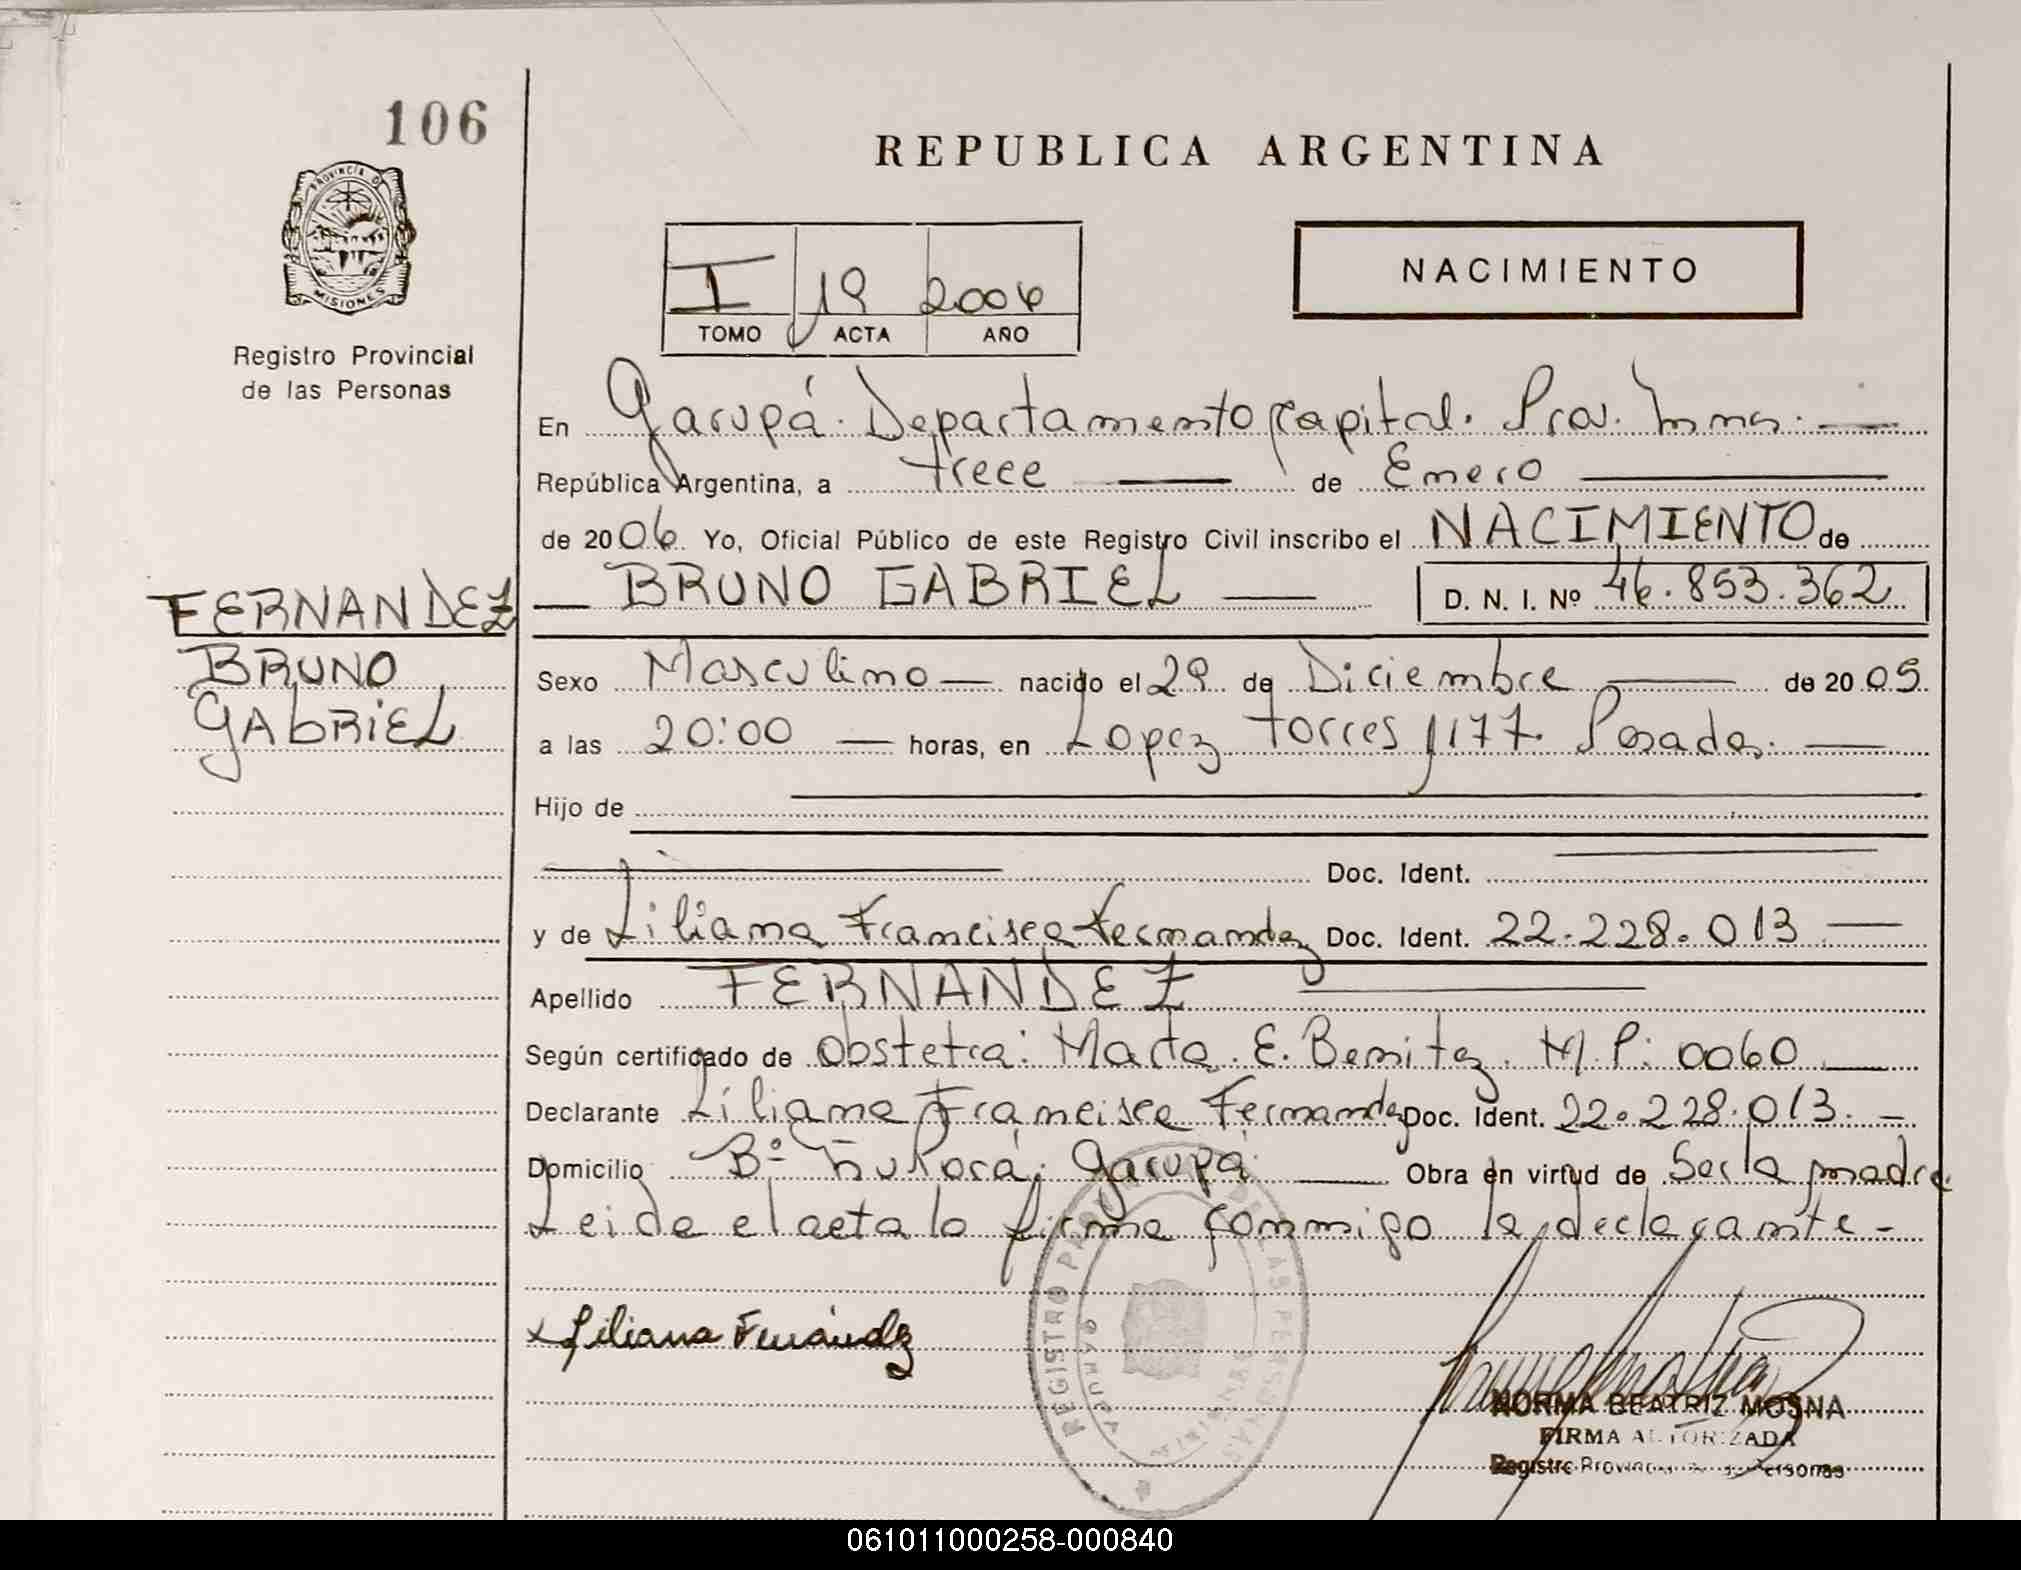 106
PROVINCIA DE
MISIONES
Registro Provincial
de las Personas
REPUBLICA ARGENTINA
I 19 2006
TOMO ACTA AÑO
NACIMIENTO
En Garupá. Departamento Capital. Prov. Mnes.
República Argentina, a trece de Enero
de 2006 Yo, Oficial Público de este Registro Civil inscribo el NACIMIENTO de
BRUNO GABRIEL D. N. I. Nº 46.853.362
FERNANDEZ
BRUNO
GABRIEL
Sexo Masculino nacido el 29 de Diciembre de 2005
a las 20:00 horas, en Lopez Torres 1177. Posadas.
Hijo de
Doc. Ident.
y de Liliana Francisca Fernandez Doc. Ident. 22.228.013
Apellido FERNANDEZ
Según certificado de Obstetra: Marta. E. Benitez. M.P: 0060
Declarante Liliana Francisca Fernandez Doc. Ident. 22.228.013.
Domicilio Bº Ñu Porá. Garupá Obra en virtud de Ser la madre.
Leida el acta la firma conmigo la declarante -
x Liliana Fernández
REGISTRO PROVINCIAL DE LAS PERSONAS
GARUPA
MISIONES
NORMA BEATRIZ MOSNA
FIRMA AUTORIZADA
Registro Provincial de las Personas
061011000258-000840